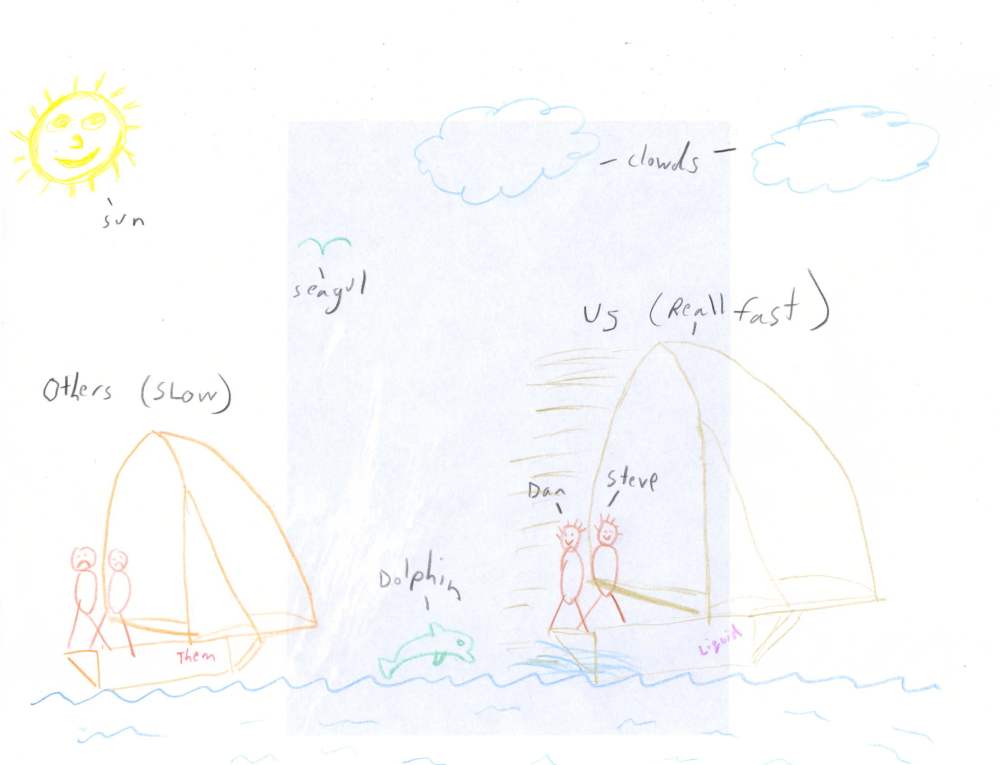 sun
- clowds -
seagul
Us (Reall fast)
Others (SLow)
Dan
Steve
Dolphin
Them
Liquid